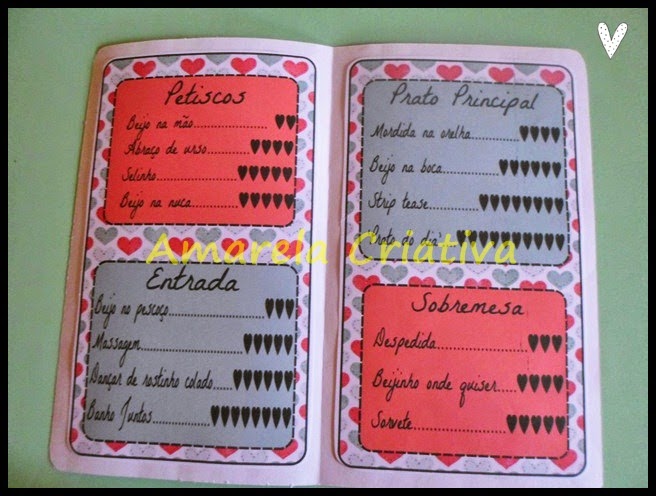 Petiscos
Beijo na mão.................. ♥♥
Abraço de urso.......... ♥♥♥♥
Selinho.................... ♥♥♥♥♥
Beijo na nuca............ ♥♥♥♥♥
Entrada
Beijo no pescoço.................. ♥♥♥
Massagem........................ ♥♥♥♥
Dançar de rostinho colado..... ♥♥♥♥♥♥
Banho Juntos............. ♥♥♥♥♥♥♥♥
Prato Principal
Mordida na orelha............ ♥♥♥♥
Beijo na boca........... ♥♥♥♥♥♥
Strip tease............ ♥♥♥♥♥♥♥♥
Prato do dia ♥♥♥♥♥♥♥♥♥
Sobremesa
Despedida.................. ♥♥♥
Beijinho onde quiser..... ♥♥♥♥
Sorvete................... ♥♥♥♥♥
Amarela Criativa